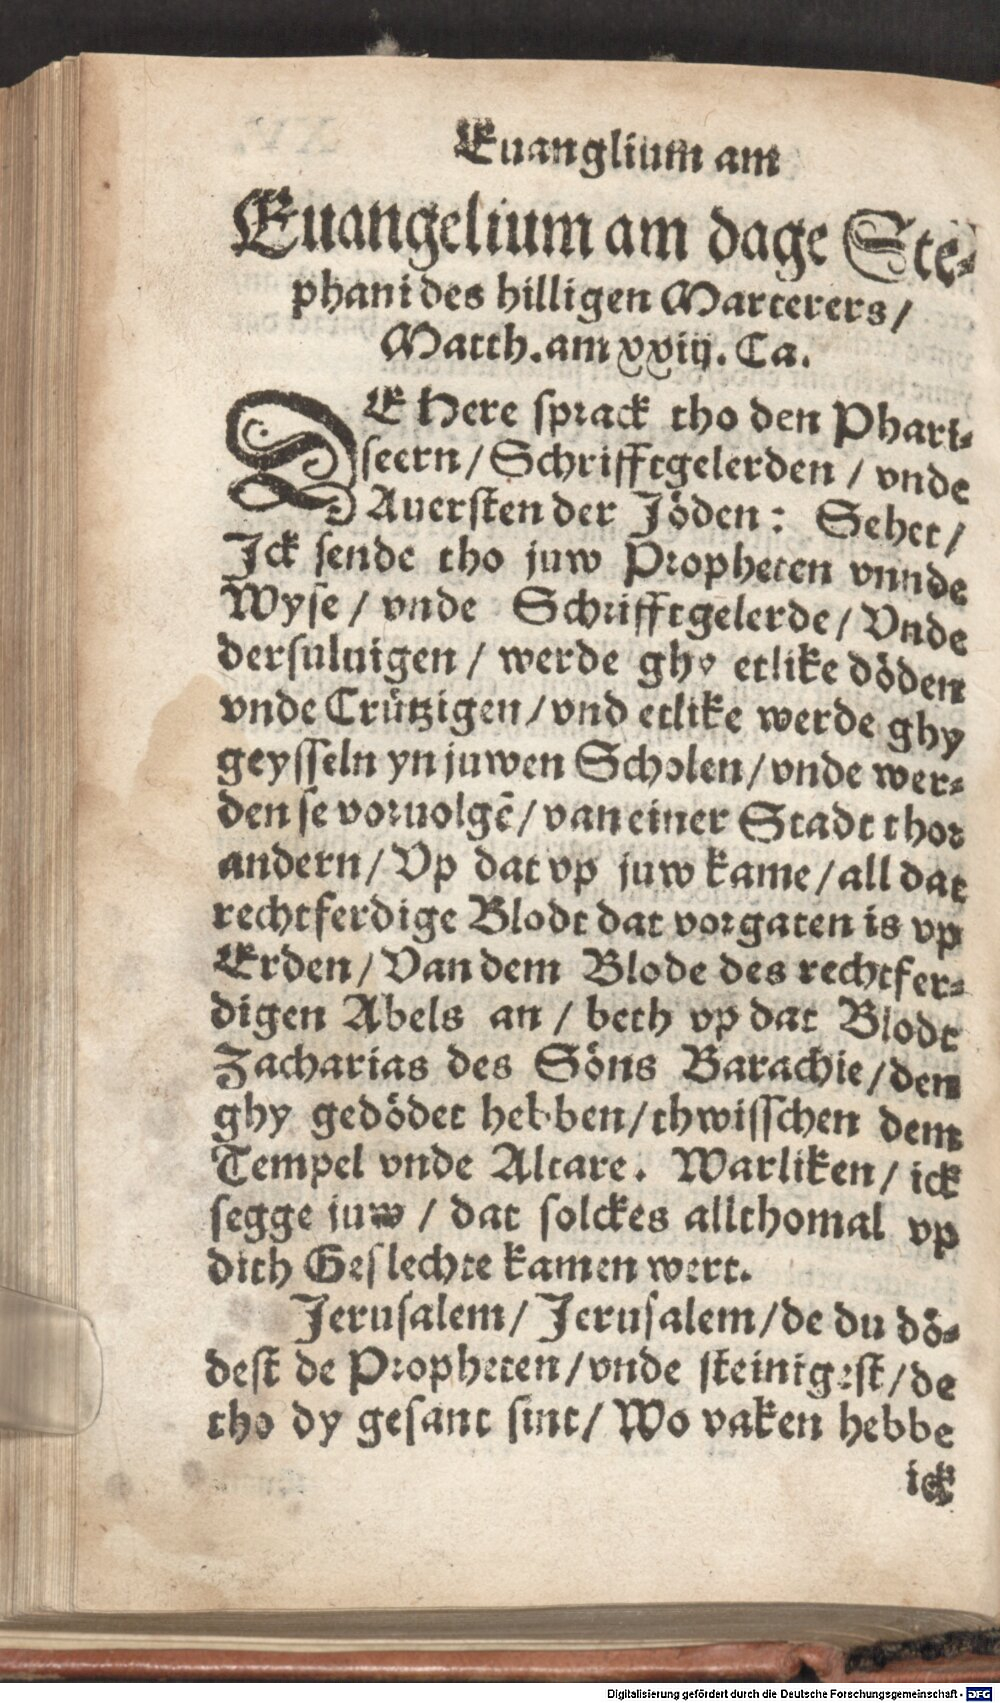 Euanglium am
Euangelium am dage Ste-
phani des hilligen Marterers /
Matth. am xxiij. Ca.
DE Here sprack tho den Phari-
seern / Schrifftgelerden / vnde
Auersten der Jöden: Sehet /
Jck sende tho juw Propheten vnnde
Wyse / vnde Schrifftgelerde / Vnde
dersuluigen / werde ghy etlike döden
vnde Crützigen / vnd etlike werde ghy
geysseln yn juwen Scholen / vnde wer-
den se voruolgē / van einer Stadt thor
andern / Vp dat vp juw kame / all dat
rechtferdige Blodt dat vorgaten is vp
Erden / Van dem Blode des rechtfer-
digen Abels an / beth vp dat Blodt
Zacharias des Söns Barachie / den
ghy gedödet hebben / thwisschen dem
Tempel vnde Altare. Warliken / ick
segge juw / dat solckes allthomal vp
dith Geslechte kamen wert.
Jerusalem / Jerusalem / de du dö-
dest de Propheten / vnde steinigest / de
tho dy gesant sint / Wo vaken hebbe
ick
Digitalisierung gefördert durch die Deutsche Forschungsgemeinschaft - DFG